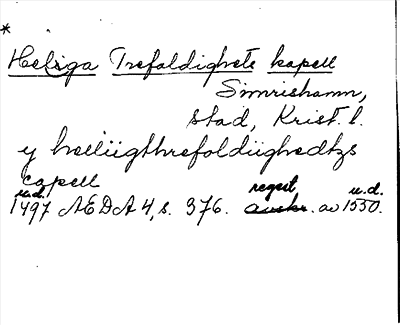 *
Heliga Trefaldighets kapell
Simrishamn,
stad, Krist. l.
y helliigthrefoldiighedtzs
capell
u.d. regest u.d.
1497 ÆDA 4, s. 376. avskr. av 1550.